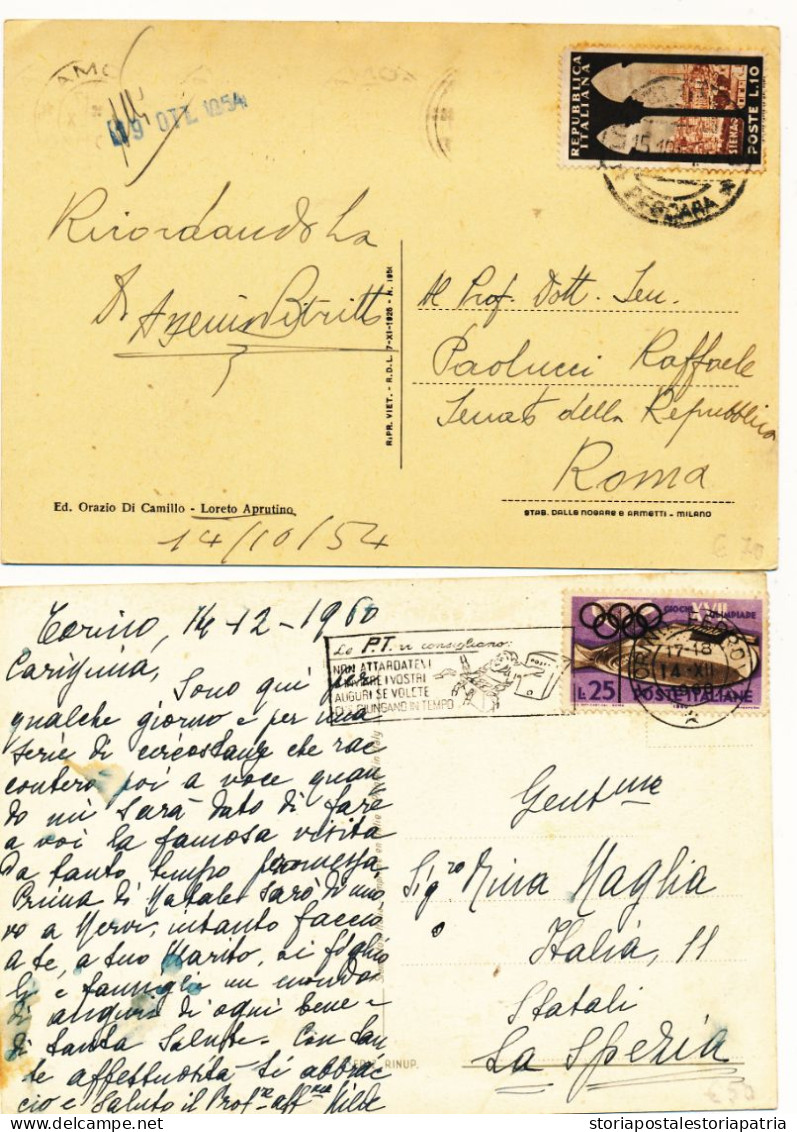 19 OTT. 1954
REPUBBLICA
ITALIANA
SIENA
POSTE L.10
PESCARA
Ricordandola
Al Prof. Dott. Sen.
Paolucci Raffaele
Senato della Repubblica
Roma
RIPR. VIET. - R.D.L. 7-XI-1925 - N. 1951
Ed. Orazio Di Camillo - Loreto Aprutino
14/10/54
STAB. DALLE NOGARE E ARMETTI - MILANO
€ 20
Torino, 14-12-1960
Carissima,
Sono qui per
qualche giorno e per una
serie di circostanze che rac
conterò poi a voce quan
do mi sarà dato di fare
a voi la famosa visita
da tanto tempo promessa.
Prima di Natale sarò di nuo
vo a Nervi, intanto faccio
a te, a tuo Marito, ai figlio
li e famiglie un mondo
di auguri di ogni bene e
di tanta salute. Con tan
te affettuosità ti abbrac
cio e saluto il Prof.re aff.ma Hilde
Le P.T. vi consigliano:
NON ATTARDATEVI
A INVIARE I VOSTRI
AUGURI SE VOLETE
CHE GIUNGANO IN TEMPO
GIOCHI XVII OLIMPIADE
L.25 POSTE ITALIANE
17-18
14-XII
Gent.ma
Sig.ra Nina Maglia
Italia, 11
Statali
La Spezia
storiapostalestoriapatria